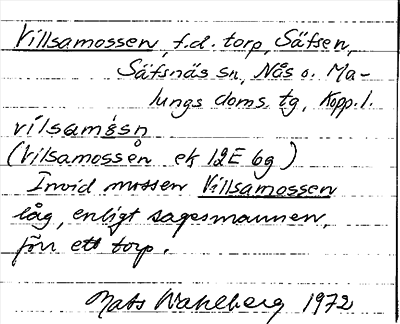 Villsamossen, f.d. torp, Säfsen,
Säfsnäs sn, Nås o. Ma-
lungs doms. tg, Kopp. l.
vilsamå̀sn
(Vilsamossen ek 12E 6g)
Invid mossen Villsamossen
låg, enligt sagesmannen,
förr ett torp.
Mats Wahlberg 1972